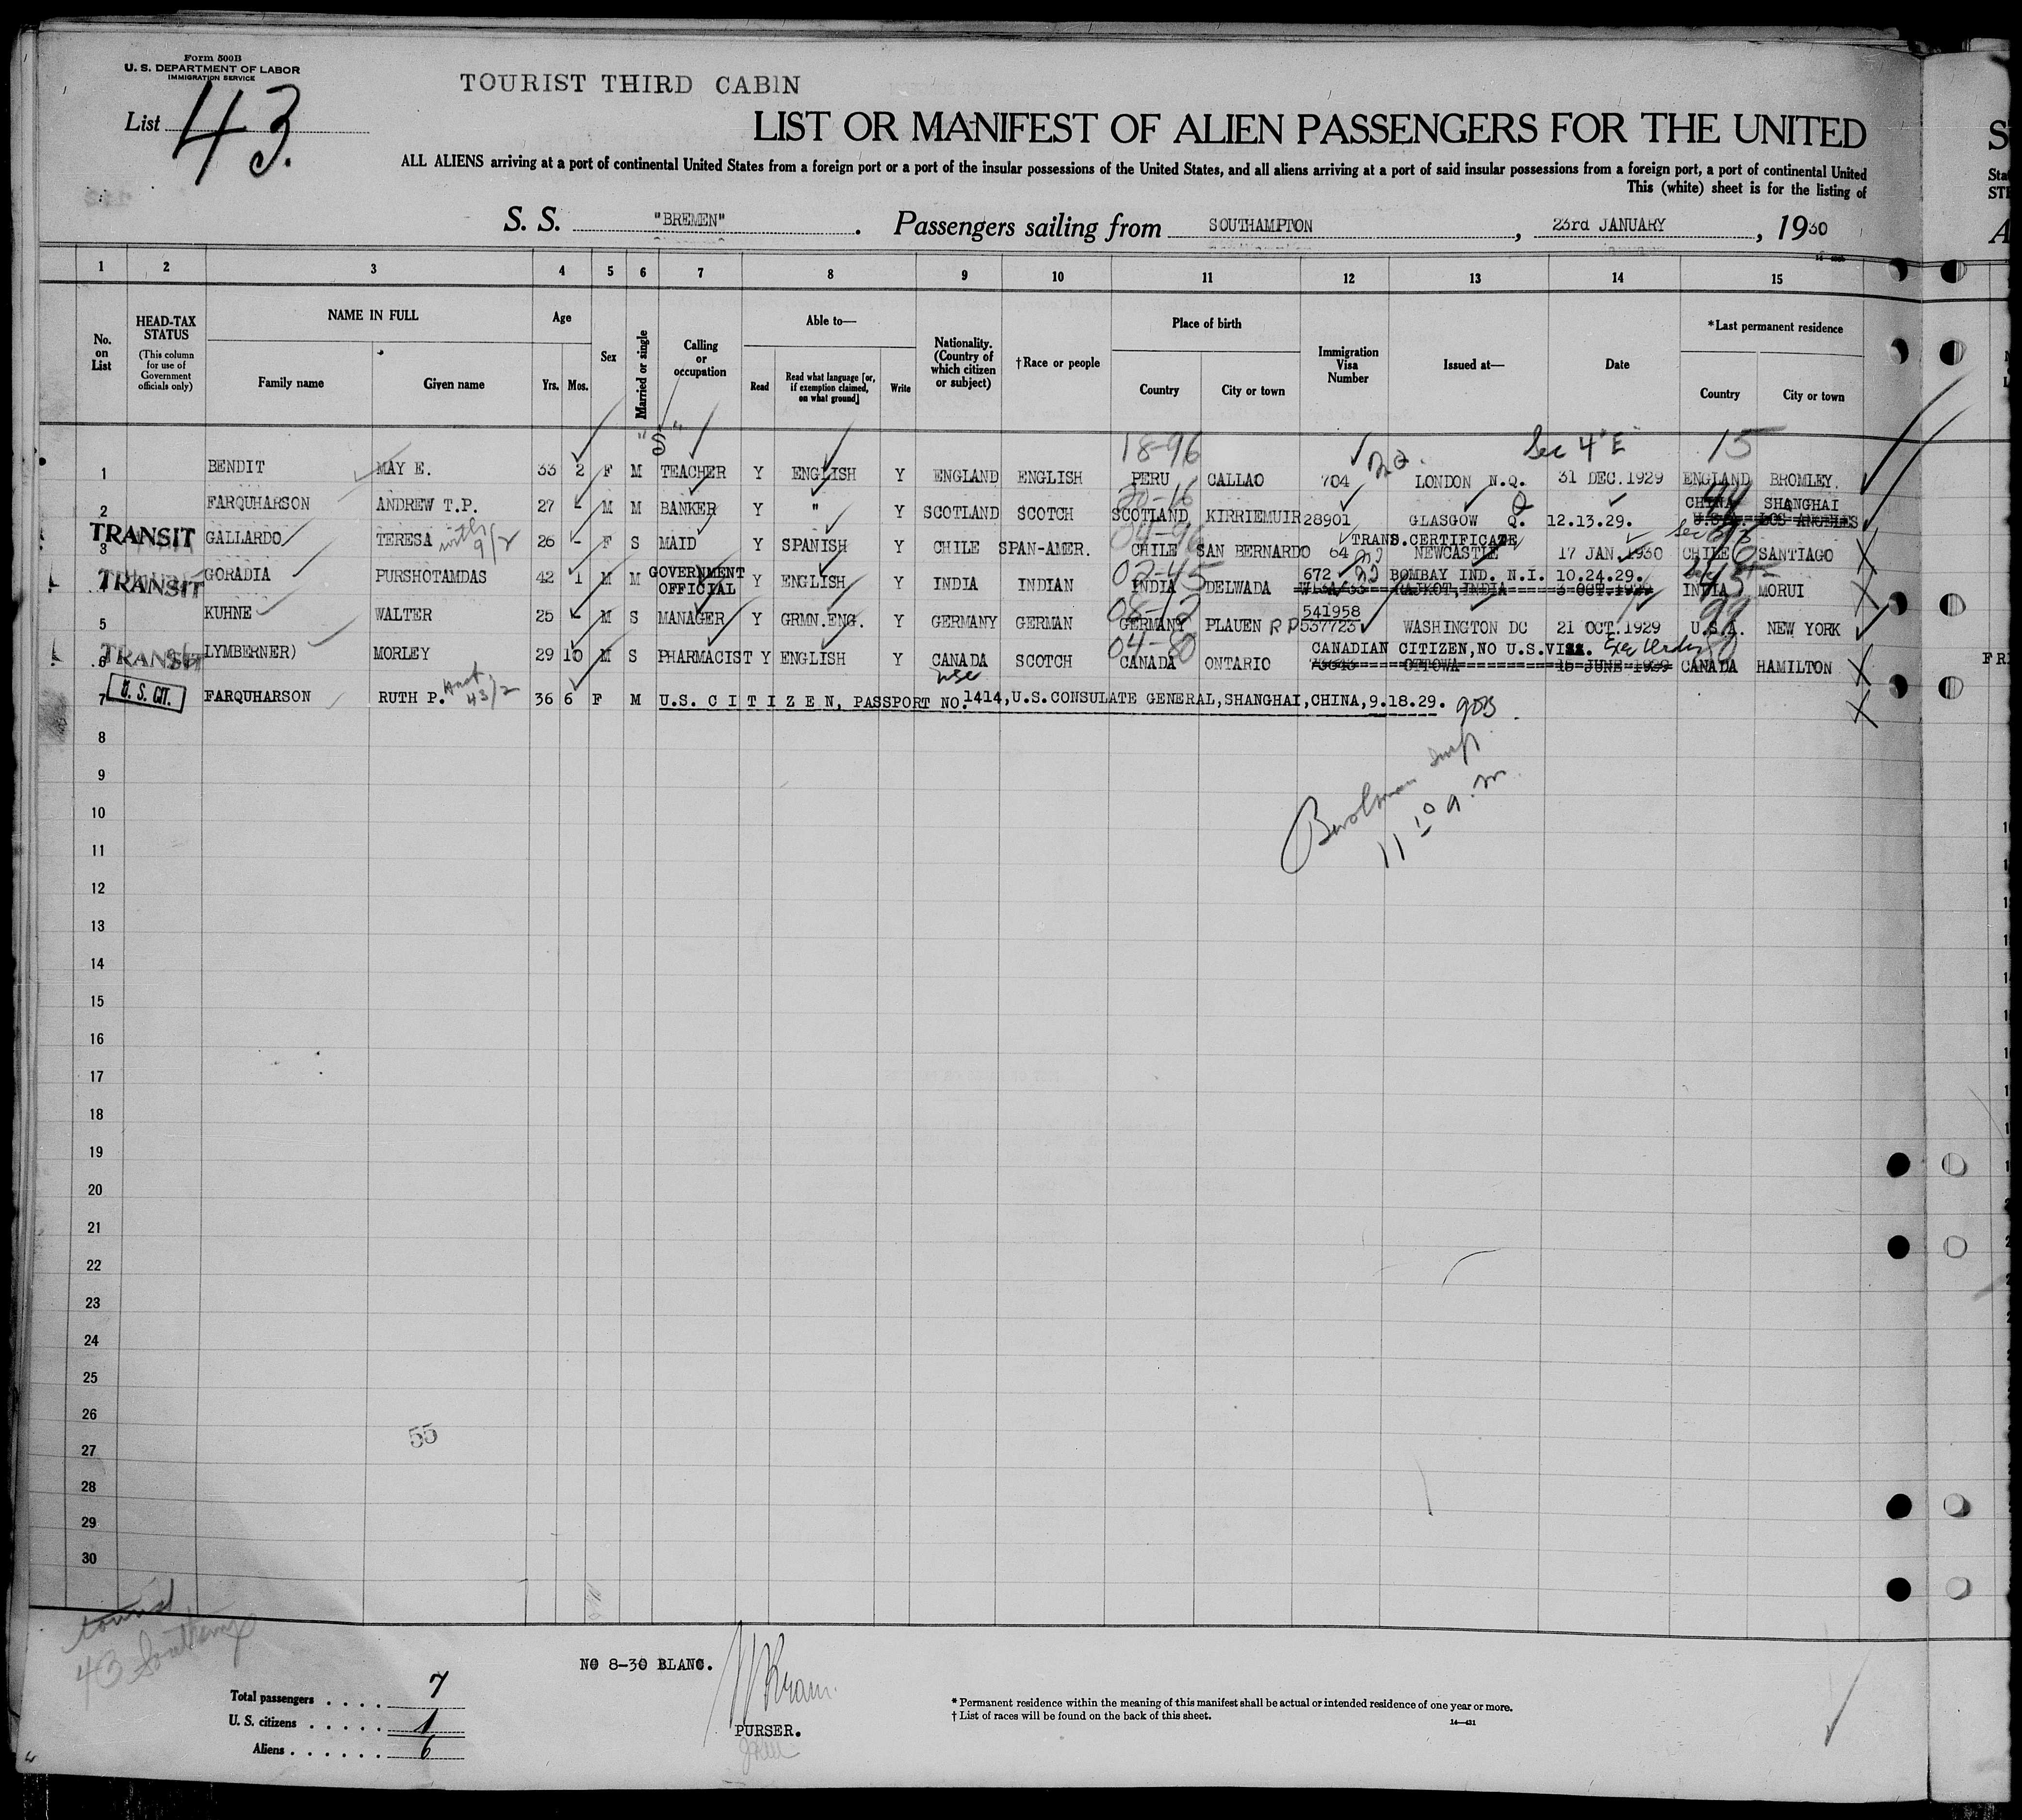 Form 500B
U. S. DEPARTMENT OF LABOR
IMMIGRATION SERVICE
List 43.
TOURIST THIRD CABIN
LIST OR MANIFEST OF ALIEN PASSENGERS FOR THE UNITED
ALL ALIENS arriving at a port of continental United States from a foreign port or a port of the insular possessions of the United States, and all aliens arriving at a port of said insular possessions from a foreign port, a port of continental United
This (white) sheet is for the listing of
S. S. "BREMEN". Passengers sailing from SOUTHAMPTON, 23rd JANUARY, 1930
1 2 3 4 5 6 7 8 9 10 11 12 13 14 15
No. on List HEAD-TAX STATUS (This column for use of Government officials only) NAME IN FULL Family name Given name Age Yrs. Mos. Sex Married or single Calling or occupation Able to— Read Read what language [or, if exemption claimed, on what ground] Write Nationality. (Country of which citizen or subject) †Race or people Place of birth Country City or town Immigration Visa Number Issued at— Date *Last permanent residence Country City or town
"S" 18-96 Sec 4 "E" 15
1 BENDIT MAY E. 33 2 F M TEACHER Y ENGLISH Y ENGLAND ENGLISH PERU CALLAO 704 LONDON N.Q. 31 DEC.1929 ENGLAND BROMLEY.
20-16 CHINA SHANGHAI
2 FARQUHARSON ANDREW T.P. 27 - M M BANKER Y " Y SCOTLAND SCOTCH SCOTLAND KIRRIEMUIR 28901 GLASGOW Q. 12.13.29. U.S.A. LOS ANGELES
04-96 TRANS.CERTIFICATE
TRANSIT 3 GALLARDO TERESA with 9/2 26 - F S MAID Y SPANISH Y CHILE SPAN-AMER. CHILE SAN BERNARDO 64 NEWCASTLE 17 JAN.1930 CHILE SANTIAGO
02-45 672 BOMBAY IND. N.I. 10.24.29.
TRANSIT GORADIA PURSHOTAMDAS 42 1 M M GOVERNMENT OFFICIAL Y ENGLISH Y INDIA INDIAN INDIA DELWADA RAJKOT, INDIA 3 OCT.1929 INDIA MORUI
08-12 541958
5 KUHNE WALTER 25 - M S MANAGER Y GRMN.ENG. Y GERMANY GERMAN GERMANY PLAUEN R P 537723 WASHINGTON DC 21 OCT.1929 U.S.A. NEW YORK
04-80 CANADIAN CITIZEN,NO U.S.VISA. Exe Order 80
TRANSIT 6 LYMBERNER) MORLEY 29 10 M S PHARMACIST Y ENGLISH Y CANADA SCOTCH CANADA ONTARIO OTTOWA 15 JUNE 1929 CANADA HAMILTON
U. S. CIT. 7 FARQUHARSON RUTH P. 43/2 36 6 F M U.S. C I T I Z E N, PASSPORT NO.1414,U.S.CONSULATE GENERAL,SHANGHAI,CHINA,9.18.29.
8
9
10
11
12
13
14
15
16
17
18
19
20
21
22
23
24
25
26
27
28
29
30
11 10 a.m.
55
tourist
43
NO 8-30 BLANC.
PURSER.
Total passengers . . . . 7
U. S. citizens . . . . . 1
Aliens . . . . . . 6
* Permanent residence within the meaning of this manifest shall be actual or intended residence of one year or more.
† List of races will be found on the back of this sheet.
14—431